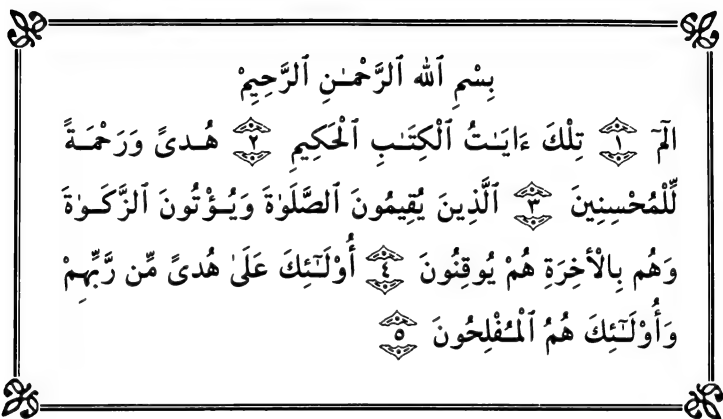 بِسْمِ ٱللهِ ٱلرَّحْمَـٰنِ ٱلرَّحِيمْ
الٓمٓ ١ تِلْكَ ءَايَـٰتُ ٱلْكِتَـٰبِ ٱلْحَكِيمِ ٢ هُـدىً وَرَحْمَـةً
لِّلْمُحْسِنِينَ ٣ ٱلَّذِينَ يُقِيمُونَ ٱلصَّلَوٰةَ وَيُـؤْتُونَ ٱلزَّكَـوٰةَ
وَهُم بِالْأخِرَةِ هُمْ يُوقِنُونَ ٤ أُوْلَـٰٓئِكَ عَلَىٰ هُدىً مِّن رَّبِّهِمْ
وَأُوْلَـٰٓئِكَ هُمُ ٱلْمُـفْلِحُونَ ٥